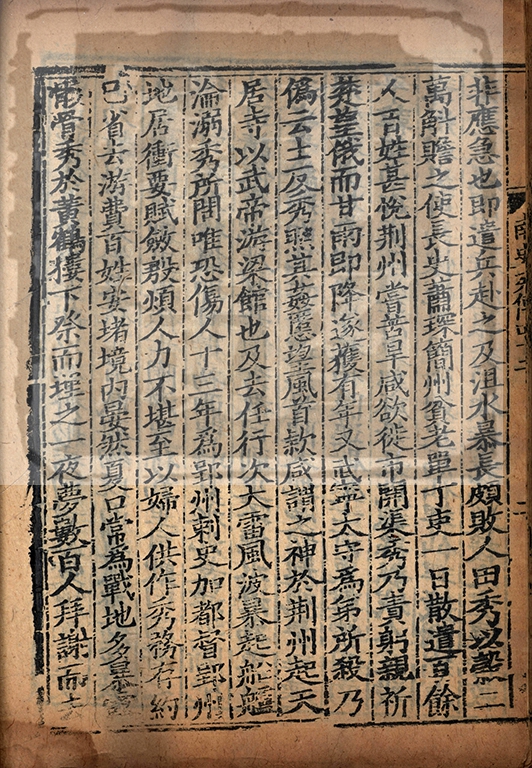 非應急也即遣兵赴之及沮水暴長頗敗人田秀以穀二
萬斛贍之使長史蕭琛簡州貧老單丁吏一日散遣百餘
人百姓甚悅荆州嘗苦旱咸欲徙市開渠秀乃責躬親祈
楚望俄而甘雨即降遂獲有年又武寧太守為弟所殺乃
偽云土反秀照其姦慝望風首款咸謂之神於荆州起天
居寺以武帝游梁館也及去任行次大雷風波暴起船艫
淪溺秀所問唯恐傷人十三年為郢州刺史加都督郢州
地居衝要賦斂殷煩人力不堪至以婦人供作秀務存約
已省去游費百姓安堵境内晏然夏口常為戰地多暴露
骸骨秀於黄鶴樓下祭而埋之一夜夢數百人拜謝而去